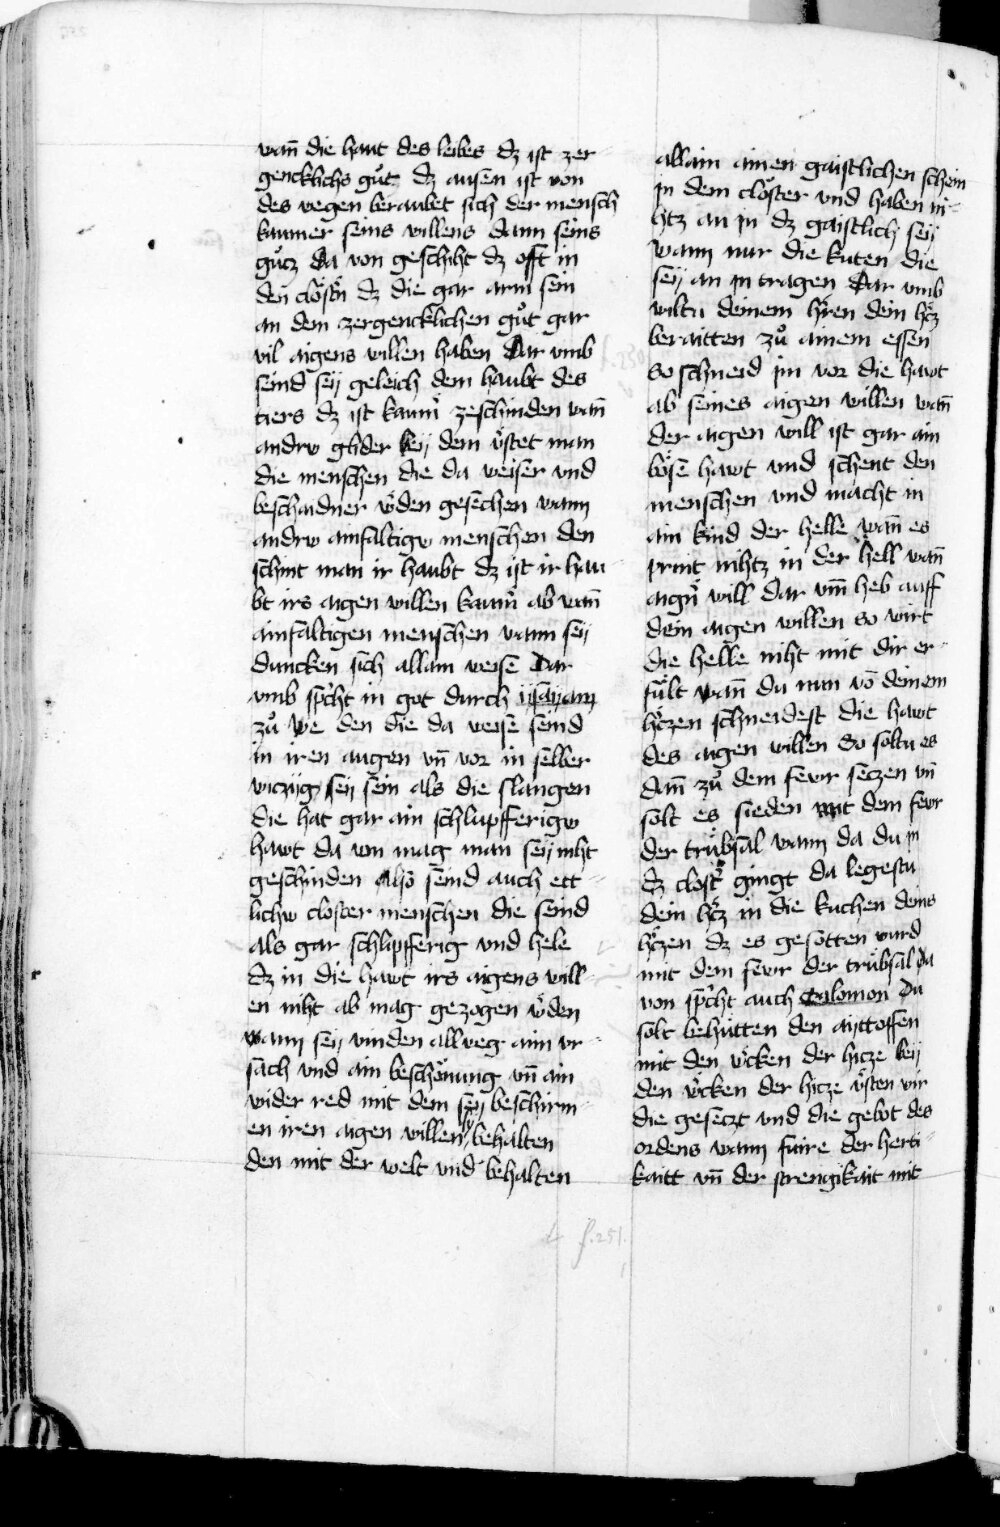 wañ die haut des leibes dz ist zer
gencklichs guͦt dz ausen ist von
des wegen beraubet sich der mensch
kaumer seins willens dann seins
guͦtz Da von geschiht dz offt in
den cloͤstn̄ dz die gar arm sein
an dem zergencklichen guͦt gar
vil aigens willen haben Dar vmb
seind seÿ geleich dem haubt des
tiers dz ist kaum̄ zeschinden wañ
andrw glider beÿ dem v̊stet man
die menschen die da weiser vnd
beschaidner ẘden gesechen wann
andrw ainfaltigw menschen den
schint man ir haubt dz ist ir hau
bt irs aigen willen kaum̄ ab wañ
ainfaltigen menschen wann seÿ
duncken sich allain weise Dar
vmb sp̄cht in got durch ÿsaÿam
zuͦ We den die da weise seind
in iren augen vñ vor in selber
wiczig seÿ sein als die slangen
die hat gar ain schlupfferigw
hawt da von mag man seÿ niht
geschinden Also seind auch ett
lichw closter menschen die seind
als gar schlipfferig vnd hele
dz in die hawt irs aigens will
en niht ab mag gezogen ẘden
wann seÿ vinden allweg ain vr
sach vnd ain beschoͤnung vñ ain
wider red mit dem seÿ beschirm
en iren aigen willen behalten
den mit der welt vnd behalten
allain ainen gaistlichen schein
in dem closter vnd haben ni
htz an in dz gaistlich seÿ
wann nur die kuten die
seÿ an in tragen Dar vmb
wiltu deinem hr̄en dein hr̄tz
beraitten zuͦ ainem essen
so schneid im vor die hawt
ab seines aigen willen wañ
der aigen will ist gar ain
boͤse hawt vnd schent den
menschen vnd macht in
ain kind der helle wañ es
print nihtz in der hell wañ
aign̄ will dar vm̄ heb auff
dein aigen willen so wirt
die helle niht mit dir er
fuͤlt wañ du nun võ deinem
hr̄tzen schneidest die hawt
des aigen willen So soltu es
dañ zuͦ dem fewr seczen vñ
solt es sieden mit dem fewr
der truͤbsal wann da du in
dz clostr̄ gingt da legestu
dein hr̄tz in die kuchen deins
hr̄tzen dz es gesotten wurd
mit dem fewr der truͤbsal Da
von sp̄cht auch Salomon Du
solt behuͤtten den aÿttoffen
mit den ẘcken der hicze beÿ
den ẘcken der hicze v̊sten wir
die geseczt vnd die gebot des
ordens wann fuire der herti
kaitt vñ der strengikait mit
f. 251.